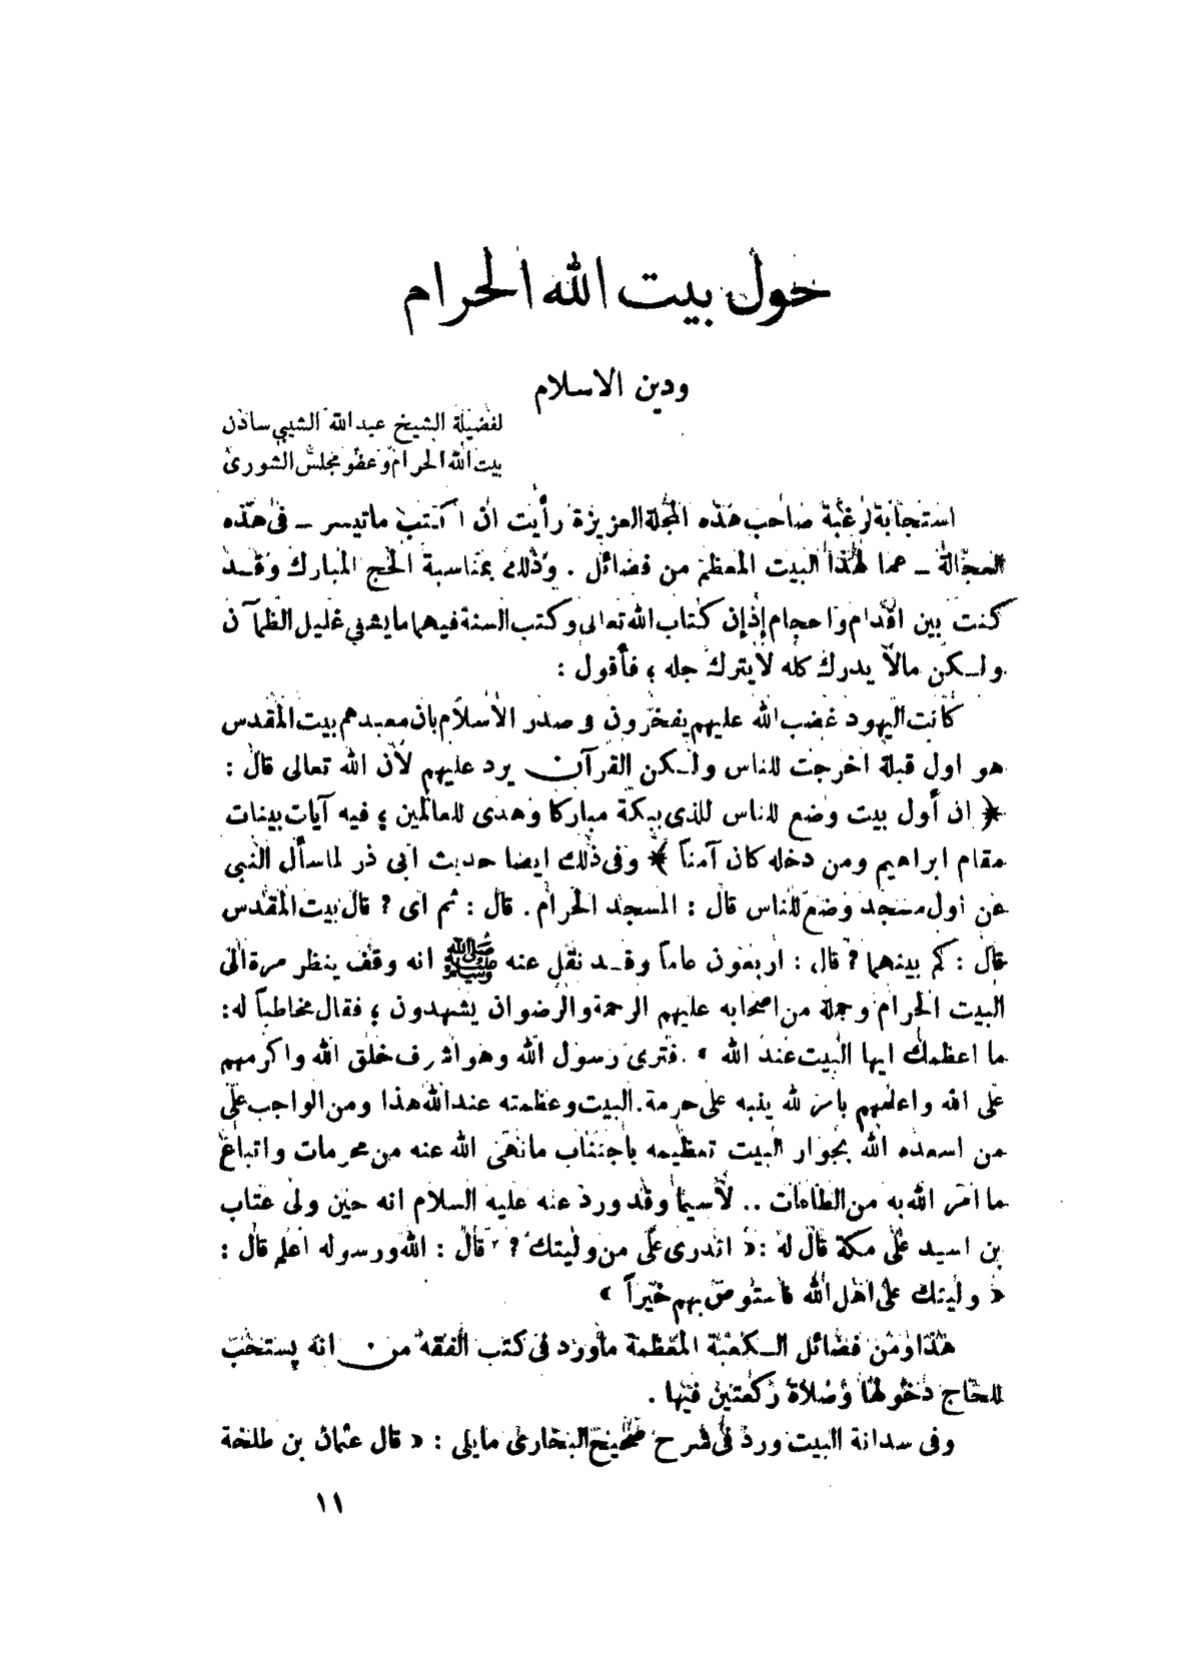 حول بيت الله الحرام
ودين الاسلام
لفضيلة الشيخ عبدالله الشيبي سادن
بيت الله الحرام وعضو مجلس الشورى
استجابة لرغبة صاحب هذه المجلة العزيزة رأيت ان اكتب ماتيسر ــ فى هذه
العجالة ــ عما لهذا البيت المعظم من فضائل . وذلك بمناسبة الحج المبارك وقــد
كنت بين اقدام واحجام إذإن كتاب الله تعالى وكتب السنة فيهما مايشفي غليل الظمآن
ولـكن مالا يدرك كله لايترك جله ؛ فأقول :
كانت اليهود غضب الله عليهم يفخرون فى صدر الاسلام بان معبدهم بيت المقدس
هو اول قبلة اخرجت للناس ولـكن القرآن يرد عليهم لأن الله تعالى قال :
﴿ ان أول بيت وضع للناس للذى ببكة مباركا وهدى للعالمين ؛ فيه آيات بينات
مقام ابراهيم ومن دخله كان آمناً ﴾ وفى ذلك ايضا حديث ابى ذر لماسأل النبى
عن اول مسجد وضع للناس قال : المسجد الحرام . قال : ثم اى ? قال بيت المقدس
قال : كم بينهما ? قال : اربعون عاماً وقــد نقل عنه ﷺ انه وقف ينظر مرة الى
البيت الحرام وجملة من اصحابه عليهم الرحمة والرضوان يشهدون ؛ فقال مخاطباً له:
ما اعظمك ايها البيت عند الله » . فترى رسول الله وهو اشرف خلق الله واكرمهم
على الله واعلمهم بامر الله ينبه على حرمة . البيت وعظمته عند الله هذا ومن الواجب على
من اسعده الله بجوار البيت تعظيمه باجتناب مانهى الله عنه من محرمات واتباع
ما امر الله به من الطاعات .. لاسيما وقد ورد عنه عليه السلام انه حين ولى عتاب
بن اسيد على مكة قال له :« اتدرى على من وليتك ? » قال : الله ورسوله اعلم قال :
« وليتك على اهل الله فاستوص بهم خيراً »
هذا ومن فضائل الـكعبة المعظمة ماورد فى كتب الفقه من . انه يستحب
للحاج دخولها وصلاة ركعتين فيها .
وفى سدانة البيت ورد فى شرح صحيح البخارى مايلى : « قال عثمان بن طلحة
١١